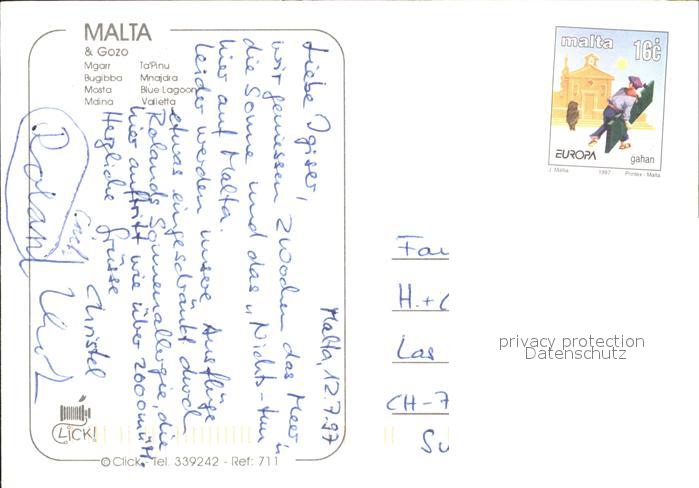 MALTA
& Gozo
Mgarr Ta'Pinu
Bugibba Mnajdra
Mosta Blue Lagoon
Mdina Valletta
Malta, 12.7.97
Liebe Igiser,
wir geniessen 2 Wochen das Meer,
die Sonne und das "Nichts-tun"
hier auf Malta.
Leider werden unsere Ausflüge
etwas eingeschränkt durch
Rolands Sonnenallergie, die
hier auftritt wie über 2000m ü.M.
Herzliche Grüsse
Christel
Roland
CLICK!
© Click - Tel. 339242 - Ref: 711
malta 16c
EUROPA
gahan
J. Malta 1997 Printex - Malta
H. + 
Las
CH-7
privacy protection
Datenschutz